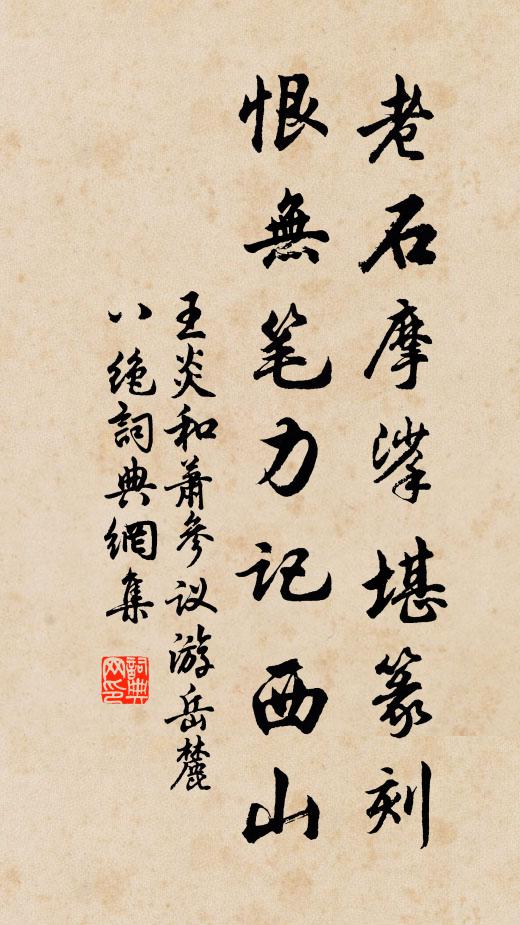 老石摩挲堪篆刻
恨無笔力记西山
王炎和蕭參议游岳麓
八绝詞典網集
詞典网印